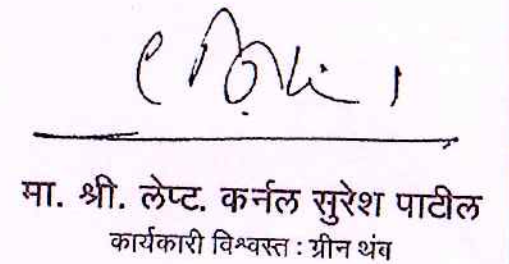 मा. श्री. लेप्ट. कर्नल सुरेश पाटील
कार्यकारी विश्वस्त : ग्रीन थंब